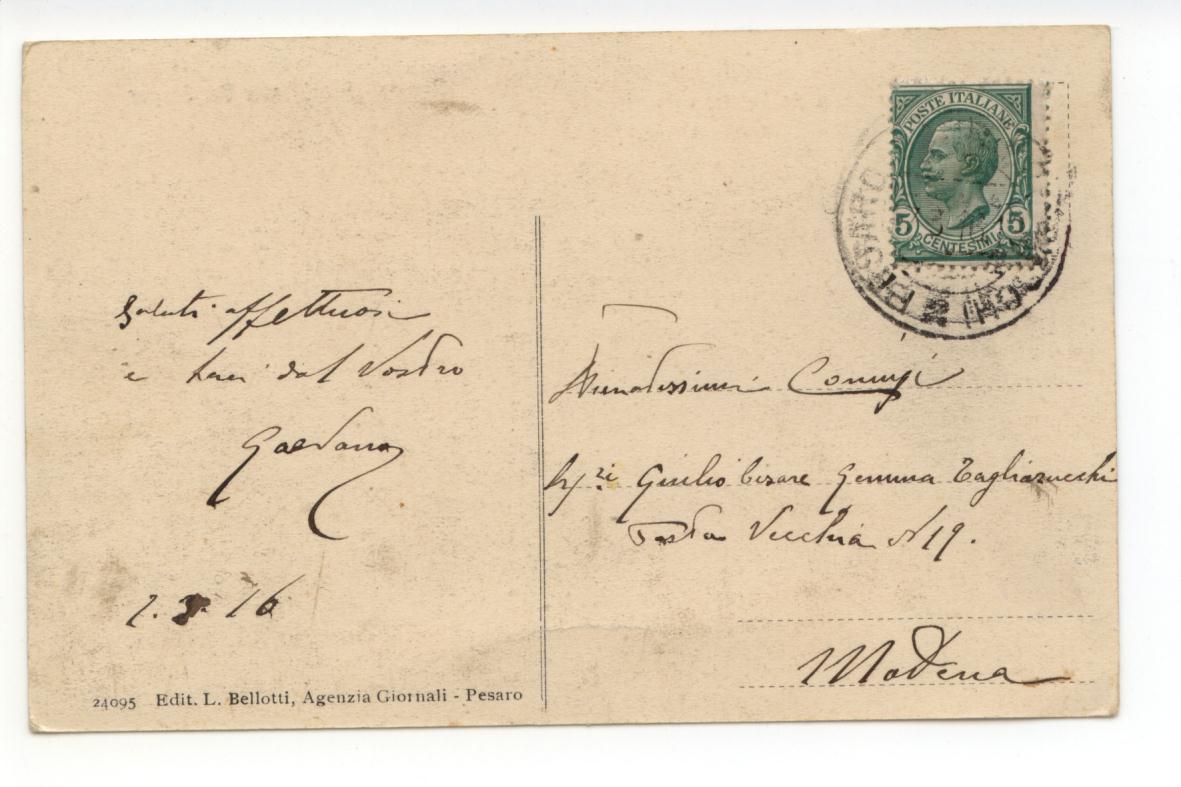 Saluti affettuosi
e baci dal Vostro
Gaetano
2. 3. 16
24095 Edit. L. Bellotti, Agenzia Giornali - Pesaro
POSTE ITALIANE
5 CENTESIMI 5
PESARO
Coniugi
Giulio Cesare Gemma Tagliazucchi
Posta Vecchia N 19.
Modena